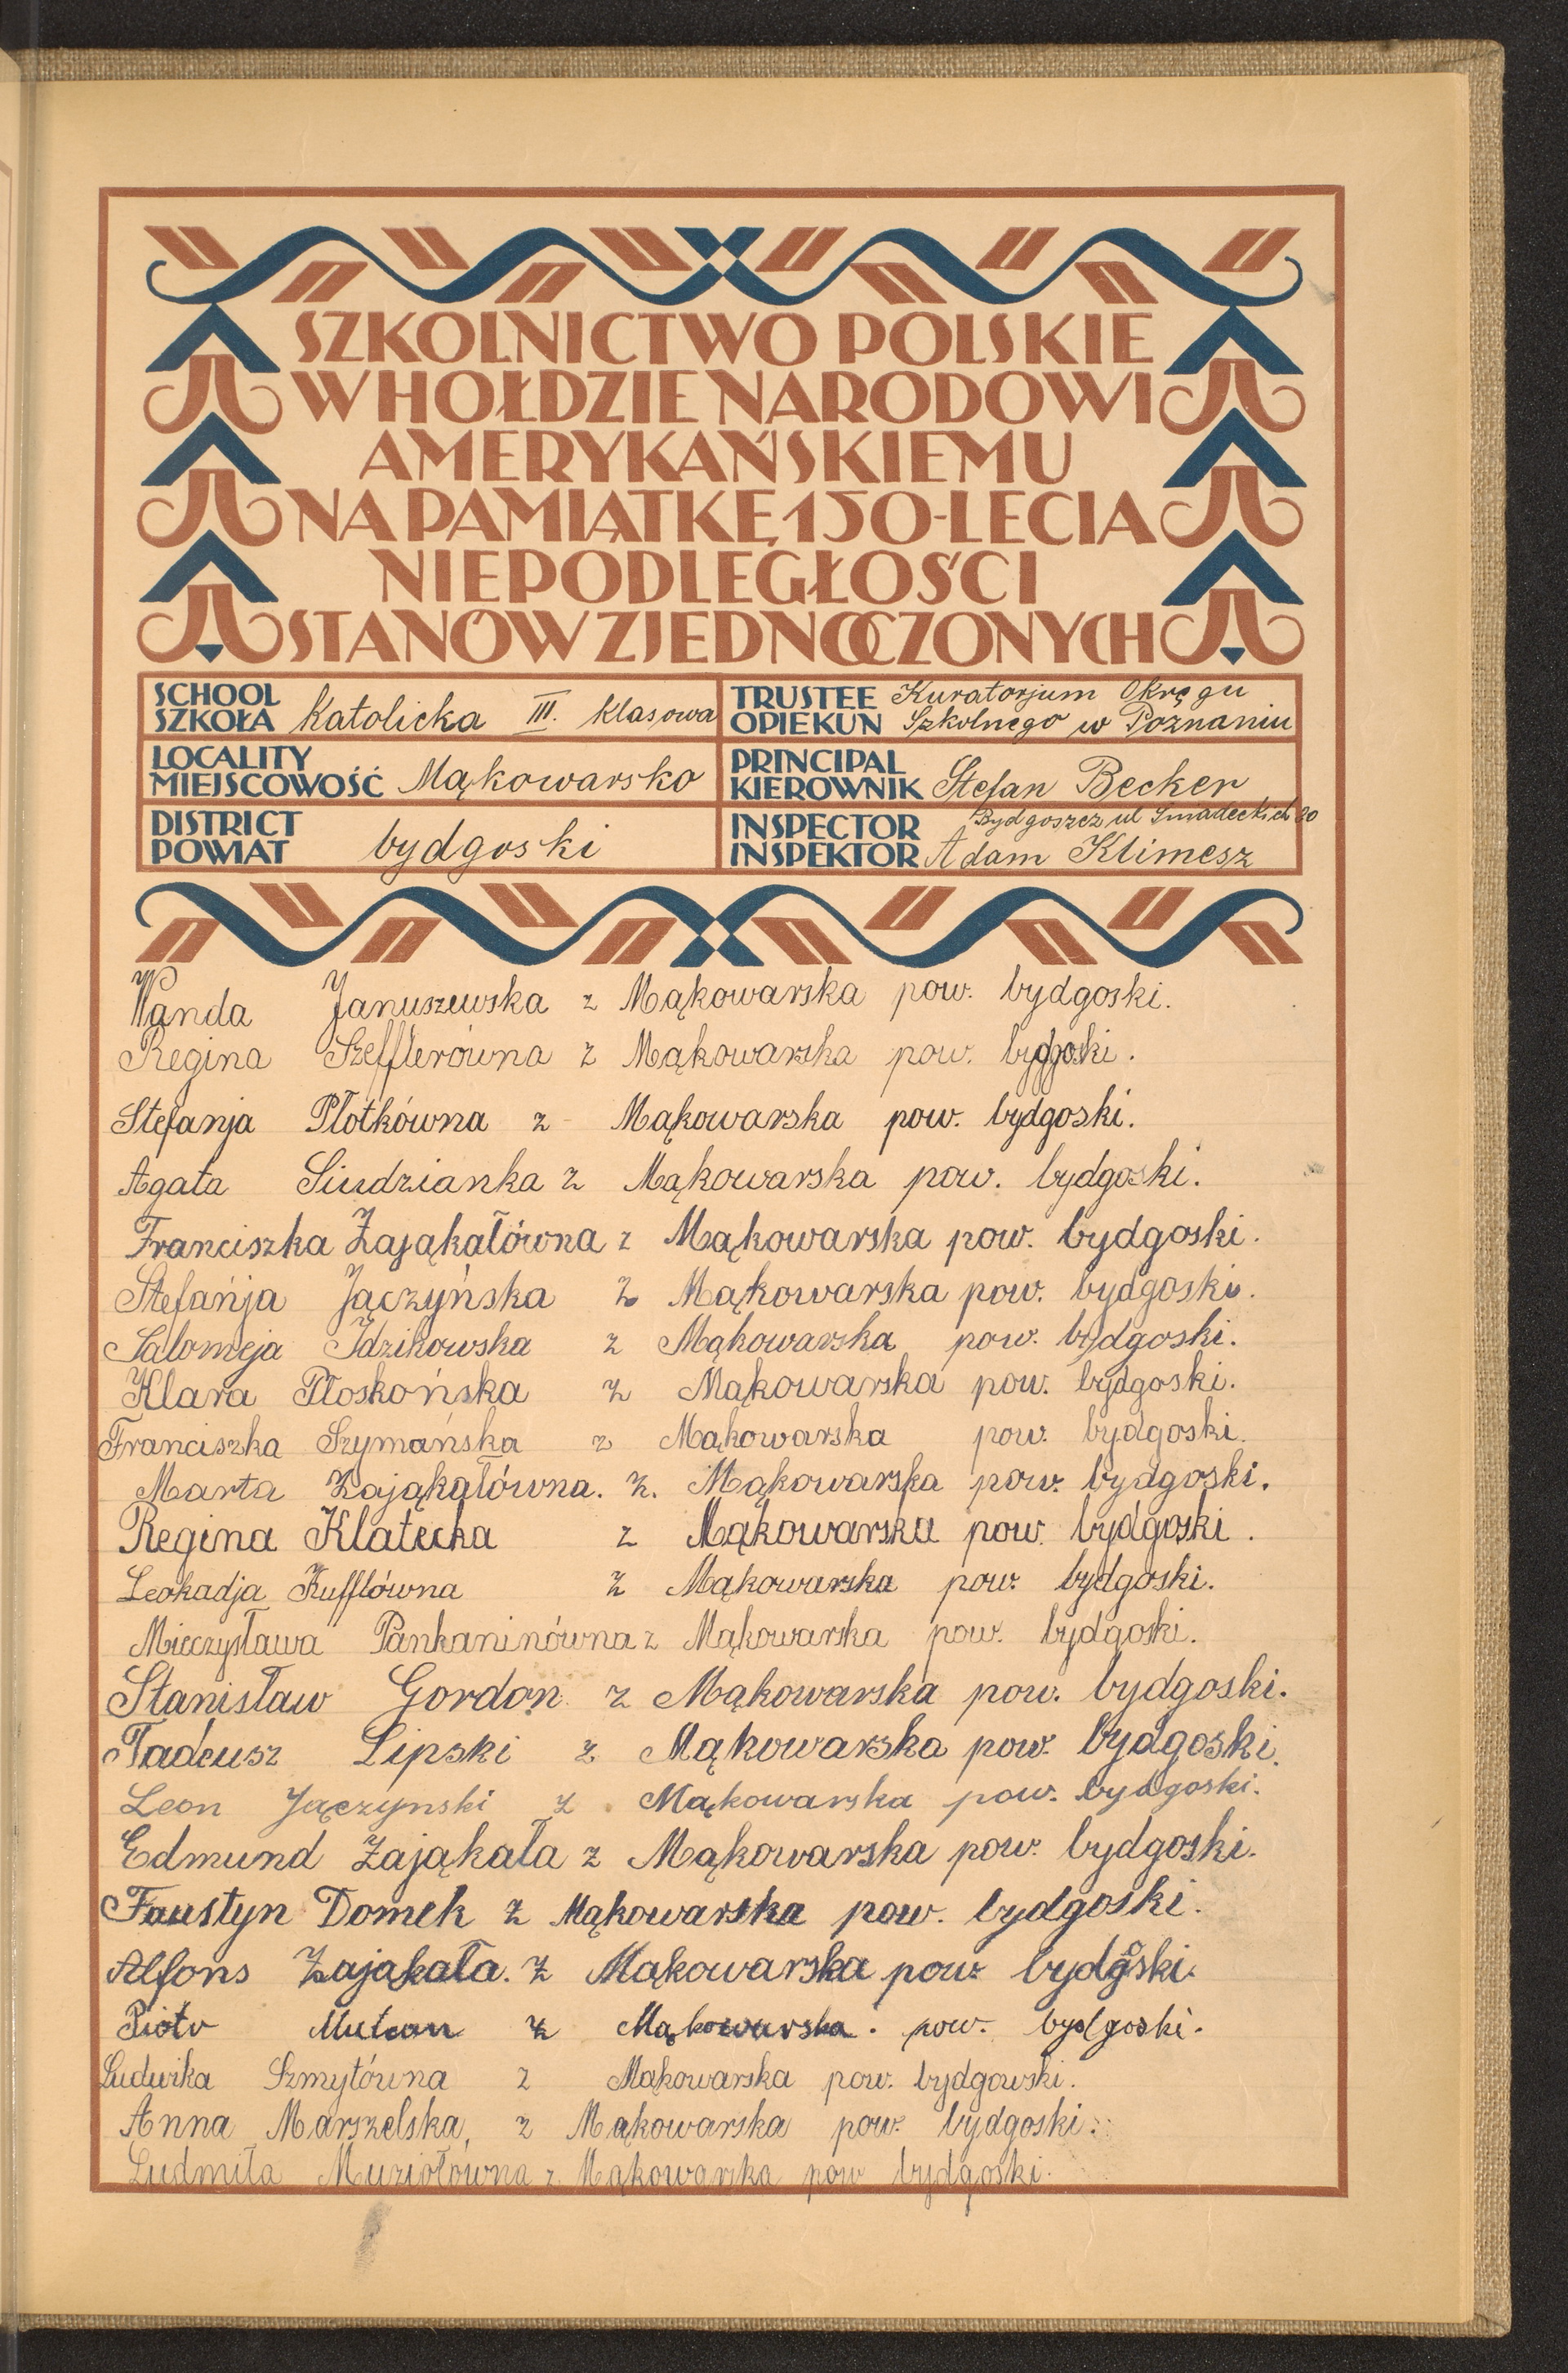 SZKOLNICTWO POLSKIE
W HOŁDZIE NARODOWI
AMERYKAŃSKIEMU
NA PAMIĄTKĘ 150-LECIA
NIEPODLEGŁOŚCI
STANÓW ZJEDNOCZONYCH
SCHOOL
SZKOŁA Katolicka III. klasowa
TRUSTEE Kuratorjum Okręgu
OPIEKUN Szkolnego w Poznaniu
LOCALITY
MIEJSCOWOŚĆ Mąkowarsko
PRINCIPAL
KIEROWNIK Stefan Becker
DISTRICT
POWIAT bydgoski
INSPECTOR Bydgoszcz ul Sniadeckich 20
INSPEKTOR Adam Klimesz
Wanda Januszewska z Mąkowarska pow. bydgoski.
Regina Szefflerówna z Mąkowarska pow. bydgoski.
Stefanja Płotkówna z Mąkowarska pow. bydgoski.
Agata Siudzianka z Mąkowarska pow. bydgoski.
Franciszka Zająkałówna z Mąkowarska pow. bydgoski.
Stefanja Jączyńska z Mąkowarska pow. bydgoski.
Salomeja Idzikowska z Mąkowarska pow. bydgoski.
Klara Płoskońska z Mąkowarska pow. bydgoski.
Franciszka Szymańska z Mąkowarska pow. bydgoski.
Marta Zająkałówna. z. Mąkowarska pow. bydgoski.
Regina Klatecka z Mąkowarska pow. bydgoski.
Leokadja Kufflówna z Mąkowarska pow. bydgoski.
Mieczysława Pankaninówna z Mąkowarska pow. bydgoski.
Stanisław Gordon z Mąkowarska pow. bydgoski.
Tadeusz Lipski z Mąkowarska pow. bydgoski.
Leon Jączynski z Mąkowarska pow. bydgoski.
Edmund Zająkała z Mąkowarska pow. bydgoski.
Faustyn Domek z Mąkowarska pow. bydgoski.
Alfons Zająkała. z Mąkowarska pow. bydgoski.
Piotr z Mąkowarska. pow. bydgoski.
Ludwika Szmytówna z Mąkowarska pow. bydgowski.
Anna Marszelska, z Mąkowarska pow. bydgoski.
Ludmiła Muziołówna z Mąkowarska pow bydgoski.